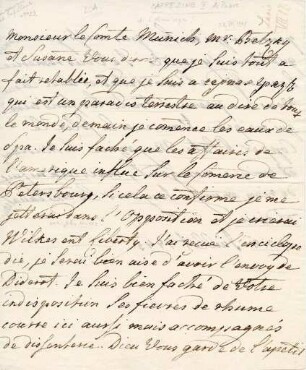 monsieur le Comte Munich, mr. Betzky
et Susane vous que je suis tout a
fait retablie, et que je suis a
qui est un paradis terrestre au dire de tout
le monde, demain je comence les eaux de
spa. Je suis faché que les affaires de
l'amerique influe sur le comerce de
Petersbourg, si cela ce confirme je me
jetterai dans l'Opposition et je crierai
Wilkes ent liberty. J'ai recue l'enciclope
die, je serai bien aise d'avoir l'envoy de
Diderot. Je suis bien faché de Votre
indisposition les fievres de rhume
courre ici aussi mais accompagnés
de disenterie. Dieu Vous garde de l'apetit